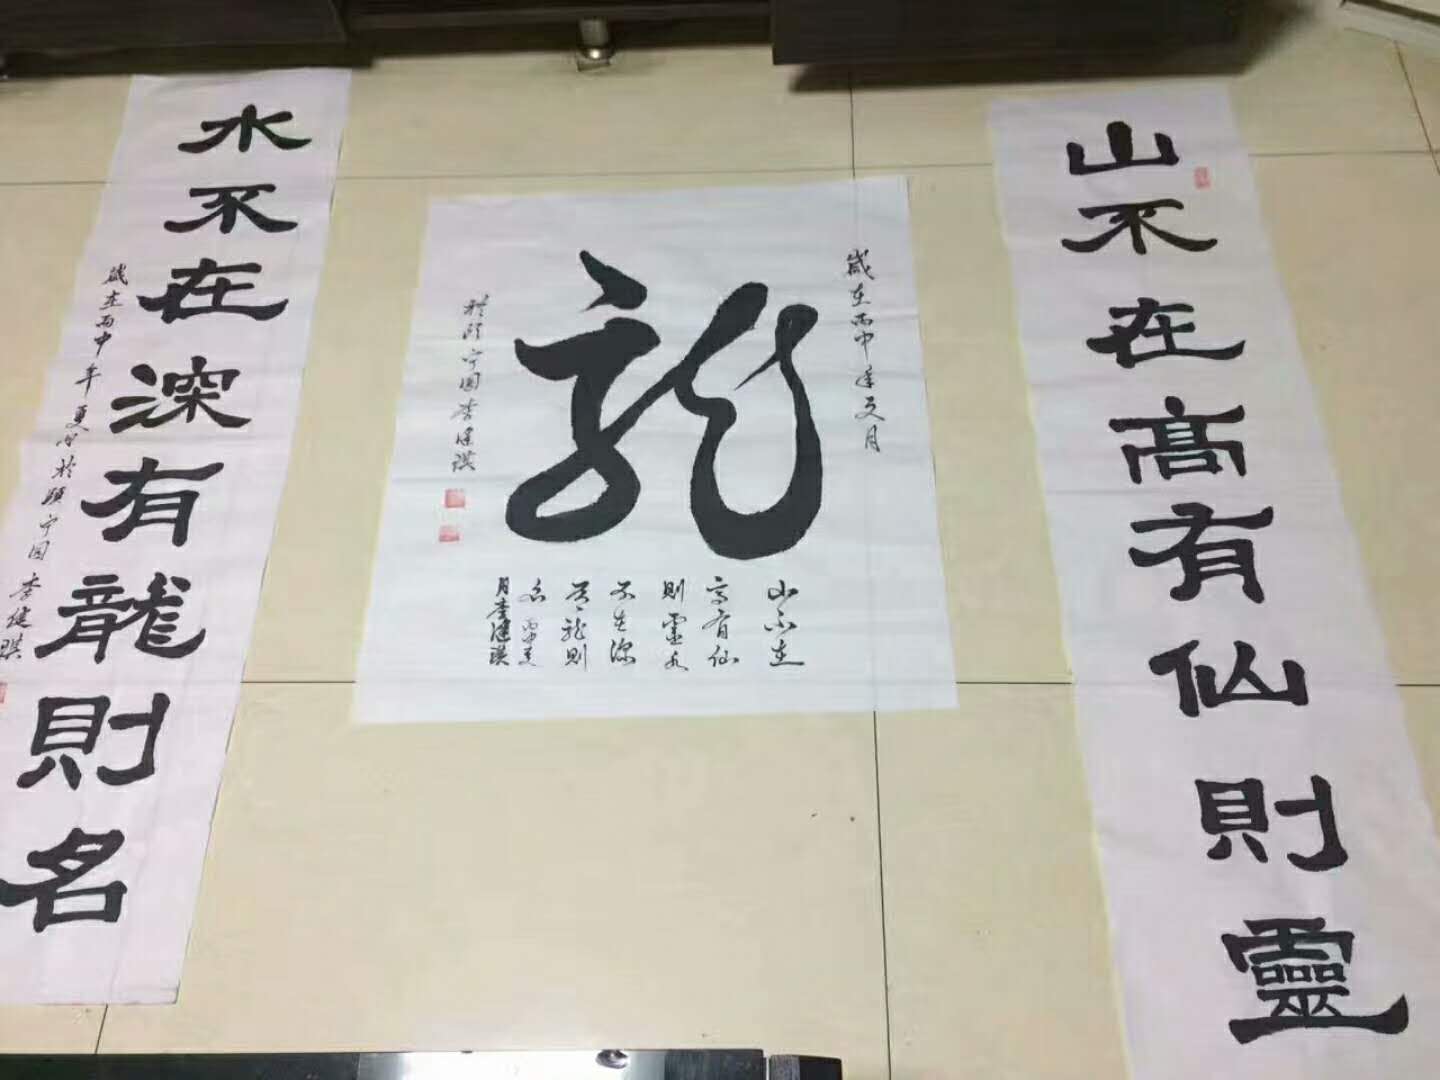 山不在高有仙則靈
歲在丙申年
龍
山不在
高有仙
則靈水
不在深
有龍則
名丙申夏
月李健琪
於頤寧園李健琪
水不在深有龍則名
歲在丙申年夏月於頤寧園李健琪